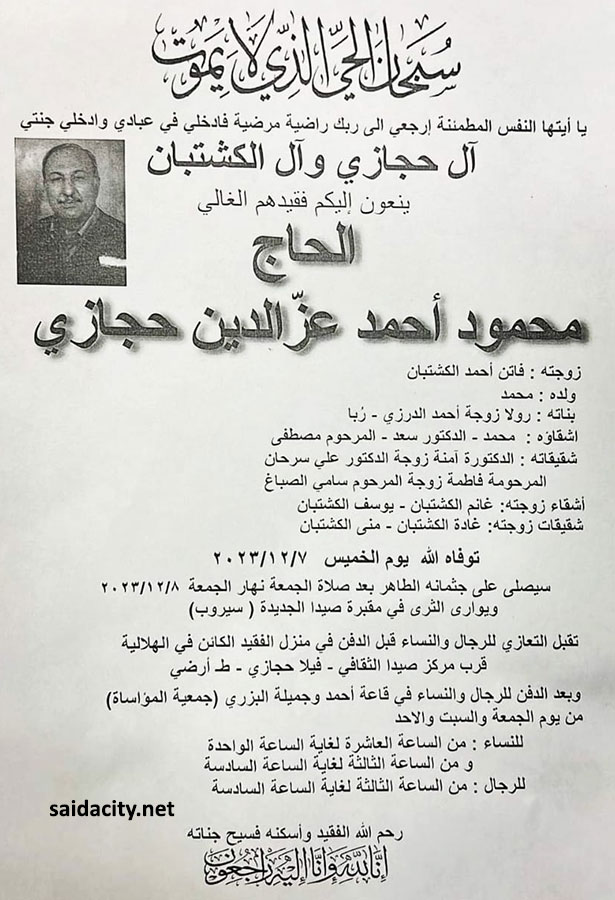 سبحان الحي الذي لا يموت
يا أيتها النفس المطمئنة إرجعي الى ربك راضية مرضية فادخلي في عبادي وادخلي جنتي
آل حجازي وآل الكشتبان
ينعون إليكم فقيدهم الغالي
الحاج
محمود أحمد عزّالدين حجازي
زوجته : فاتن أحمد الكشتبان
ولده : محمد
بناته : رولا زوجة أحمد الدرزي - رُبا
اشقاؤه : محمد - الدكتور سعد - المرحوم مصطفى
شقيقاته : الدكتورة آمنة زوجة الدكتور علي سرحان
المرحومة فاطمة زوجة المرحوم سامي الصباغ
أشقاء زوجته: غانم الكشتبان - يوسف الكشتبان
شقيقات زوجته: غادة الكشتبان - منى الكشتبان
توفاه الله يوم الخميس ٢٠٢٣/١٢/٧
سيصلى على جثمانه الطاهر بعد صلاة الجمعة نهار الجمعة ٢٠٢٣/١٢/٨
ويوارى الثرى في مقبرة صيدا الجديدة ( سيروب)
تقبل التعازي للرجال والنساء قبل الدفن في منزل الفقيد الكائن في الهلالية
قرب مركز صيدا الثقافي - فيلا حجازي - طـ أرضي
وبعد الدفن للرجال والنساء في قاعة أحمد وجميلة البزري (جمعية المؤاساة)
من يوم الجمعة والسبت والاحد
للنساء : من الساعة العاشرة لغاية الساعة الواحدة
و من الساعة الثالثة لغاية الساعة السادسة
للرجال : من الساعة الثالثة لغاية الساعة السادسة
saidacity.net
رحم الله الفقيد وأسكنه فسيح جناته
إنا لله وإنا إليه راجعون